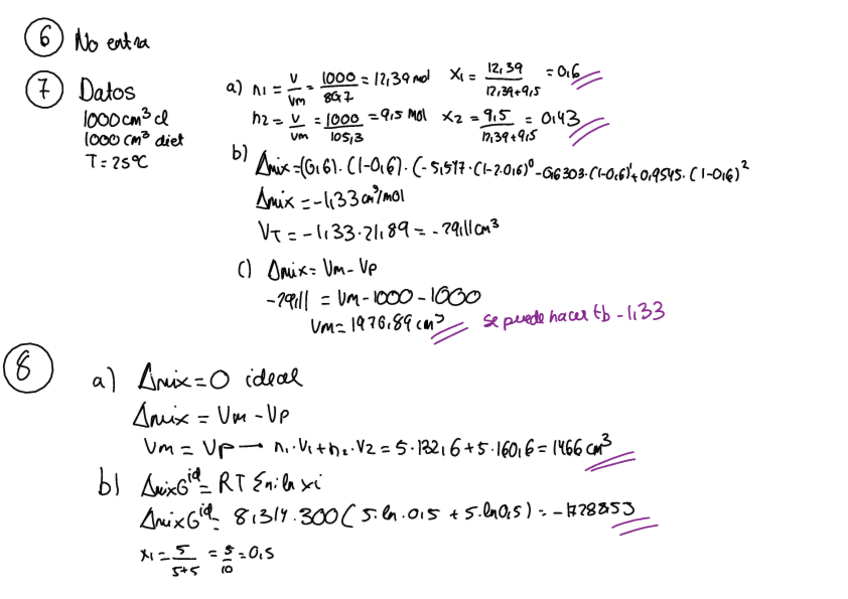 6 No entra
7 Datos
1000 cm³ cl
1000 cm³ diet
T = 25ºC
a) n1 = V/Vm = 1000/80,7 = 12,39 mol x1 = 12,39/12,39+9,5 = 0,6
n2 = V/Vm = 1000/105,3 = 9,5 mol x2 = 9,5/12,39+9,5 = 0,43
b) Δmix = (0,6) · (1-0,6) · (-5,577 · (1-2·0,6)⁰ - 0,6303 · (1-0,6)¹ + 0,9545 · (1-0,6)²
Δmix = -1,33 cm³/mol
VT = -1,33 · 21,89 = -29,11 cm³
c) Δmix = Vm - Vp
-29,11 = Vm - 1000 - 1000
Vm = 1976,89 cm³ se puede hacer tb -1,33
8 a) Δmix = 0 ideal
Δmix = Vm - Vp
Vm = Vp → n1·V1 + n2·V2 = 5·132,6 + 5·160,6 = 1466 cm³
b) ΔmixGid = RT Σni ln xi
ΔmixGid = 8,314 · 300 (5 · ln · 0,5 + 5 · ln 0,5) = -1728853
x1 = 5/5+5 = 5/10 = 0,5